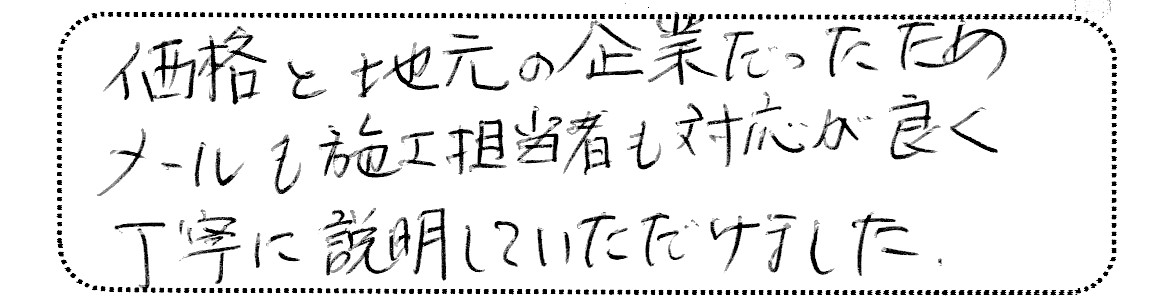 価格と地元の企業だったため
メールも施工担当者も対応が良く
丁寧に説明していただけました.